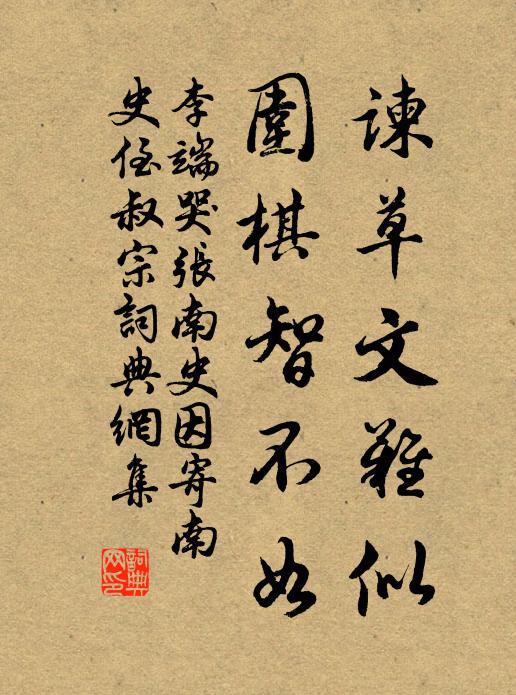 諫草文難似
圍棋智不如
李端哭張南史因寄南
史侄叔宗詞典網集
詞典
网印